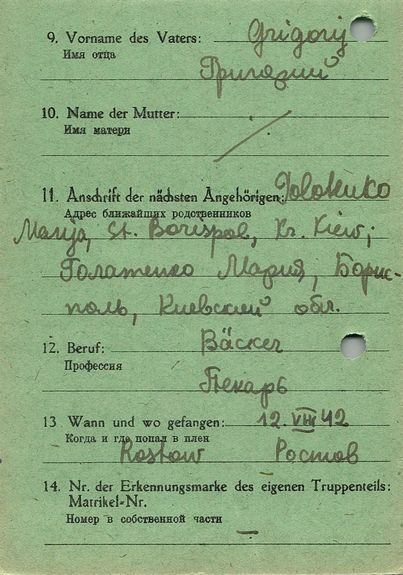 9. Vorname des Vaters: Grigorij
Имя отца
Григорий
10. Name der Mutter:
Имя матери
11. Anschrift der nächsten Angehörigen: Golotenko
Адрес ближайших родственников
Marija, St. Borispol, Kr. Kiew;
Голатенко Мария, Борис-
поль, Киевский обл.
12. Beruf: Bäcker
Профессия
Пекарь
13 Wann und wo gefangen: 12. VIII 42
Когда и где попал в плен
Rostow Ростов
14. Nr. der Erkennungsmarke des eigenen Truppenteils:
Matrikel-Nr.
Номер в собственной части
—